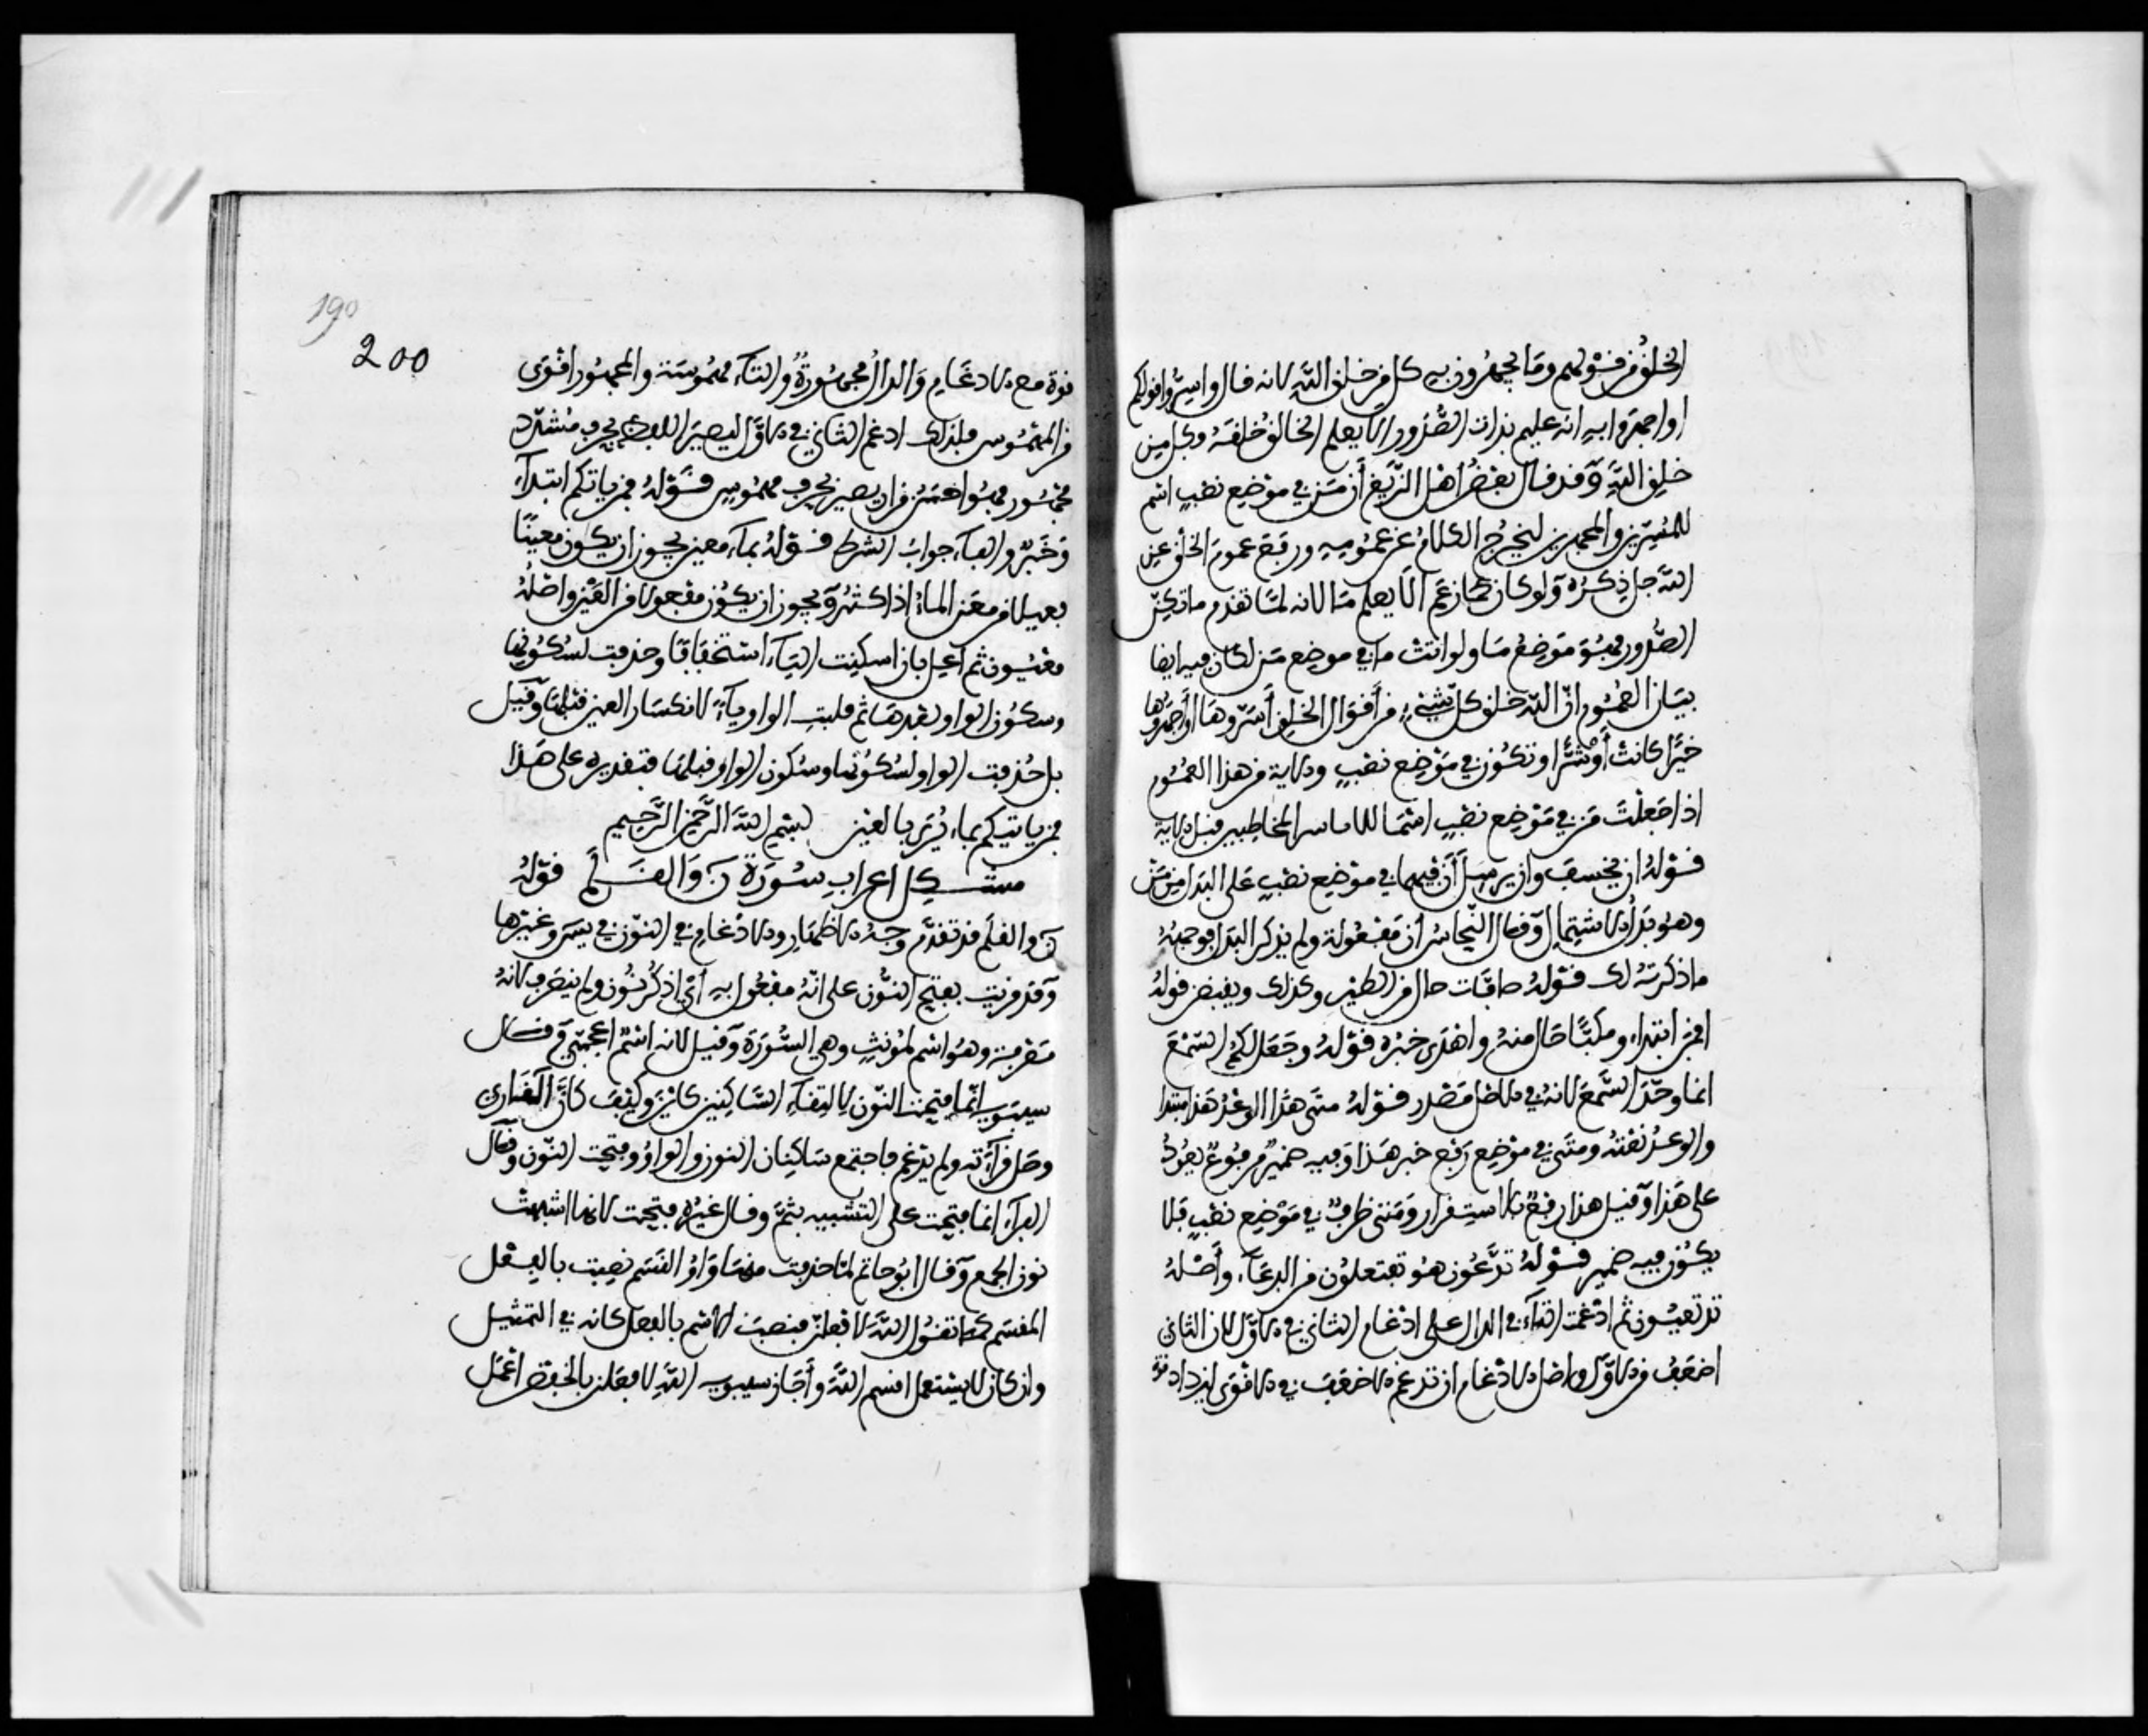 الخلق من قولهم وما يجهرون به كل من خلق الله لانه قال واسروا قولكم
او اجهروا به انه عليم بذات الصدور الا يعلم الخالق خلقه وكل من
خلق الله وقد قال بعض اهل الزيغ ان من في موضع نصب اسم
للمسرين والمجهرين ليخرج الكلام عن عمومه ويرفع عموم الخلق عن
الله جل ذكره ولو كان كما زعم الا يعلم ما لانه لما تقدم ما تكن
الصدور فهو موضع ما ولو اتت ما في موضع من لكان فيه ايضا
بيان العموم ان الله خلق كل شيء من اقوال الخلق أسروها أو أجهروها
خيرا كانت أو شرا وتكون في موضع نصب والاية من هذا العموم
اذا جعلت من في موضع نصب اسما للاناس المخاطبين قبل الاية
قوله ان يخسف وان يرسل أن فيهما في موضع نصب على البدل من من
وهو بدل الاشتمال وقال النحاس أن مفعولة ولم يذكر البدل فوجهه
ما ذكرته لك قوله صافات حال من الطير وكذلك ويقبضن قوله
افمن ابتداء ومكبا حال منه واهدى خبره قوله وجعل لكم السمع
انما وحد السمع لانه في الاصل مصدر قوله متى هذا الوعد هذا مبتدا
والوعد نعته ومتى في موضع رفع خبر هذا وفيه ضمير مرفوع يعود
على هذا وقيل هذا رفع بالاستقرار ومتى ظرف في موضع نصب فلا
يكون فيه ضمير قوله تدعون هو تفتعلون من الدعاء وأصله
تدتعيون ثم ادغمت التاء في الدال على ادغام الثاني في الاول لان الثاني
اضعف من الاول واصل الادغام ان تدغم الاضعف في الاقوى ليزداد قوة
190
200
قوة مع الادغام والدال مجهورة والتاء مهموسة والمجهور اقوى
من المهموس فلذلك ادغم الثاني في الاول ليصير اللفظ بحرف مشدد
مجهور فهو احسن من ان يصير بحرف مهموس قوله فمن ياتيكم ابتداء
وخبر والفاء جواب الشرط قوله بماء معين يجوز ان يكون معينا
فعيلا من معن الماء اذا كثر ويجوز ان يكون مفعولا من العين واصله
معيون ثم أعل بان اسكنت الياء استخفافا وحذفت لسكونها
وسكون الواو بعدها ثم قلبت الواو ياء لانكسار العين قبلها وقيل
بل حذفت الواو لسكونها وسكون الواو قبلها فتقديره على هذا
فمن ياتيكم بماء يرى بالعين بسم الله الرحمن الرحيم
مشكل اعراب سورة ن والقلم قوله
ن والقلم قد تقدم وجه الاظهار والادغام في النون في يس وغيرها
وقد قريت بفتح النون على انه مفعول به أي اذكر نون ولم ينصرف لانه
معرفة وهو اسم لمؤنث وهي السورة وقيل لانه اسم اعجمي وقال
سيبويه انما فتحت النون لالتقاء الساكنين كاين وكيف كان القاري
وصل قراءته ولم يدغم فاجتمع ساكنان النون والواو وفتحت النون وقال
الفراء انما فتحت على التشبيه بثم وقال غيره فتحت لانها اشبهت
نون الجمع وقال ابو حاتم لما حذفت منها واو القسم نصبت بالفعل
المقسم كما تقول الله لافعلن فنصبت الاسم بالفعل كانه في التمثيل
وان كان لا يستعمل اقسم الله وأجاز سيبويه الله لافعلن بالخفض اعمل